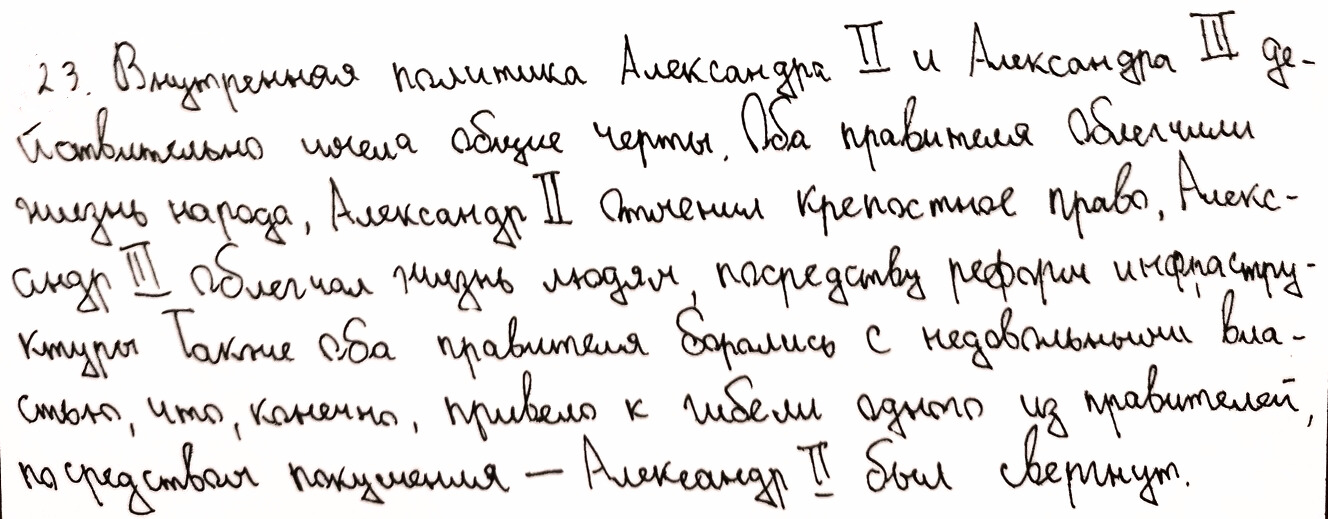 23. Внутренная политика Александра II и Александра III де-
йствительно имела общие черты. Оба правителя облегчили
жизнь народа, Александр II отменил крепостное право, Алекс-
андр III облегчал жизнь людям, посредству реформ инфрастру-
ктуры Также оба правителя боролись с недовольными вла-
стью, что, конечно, привело к гибели одного из правителей,
посредством покушения — Александр II был свергнут.